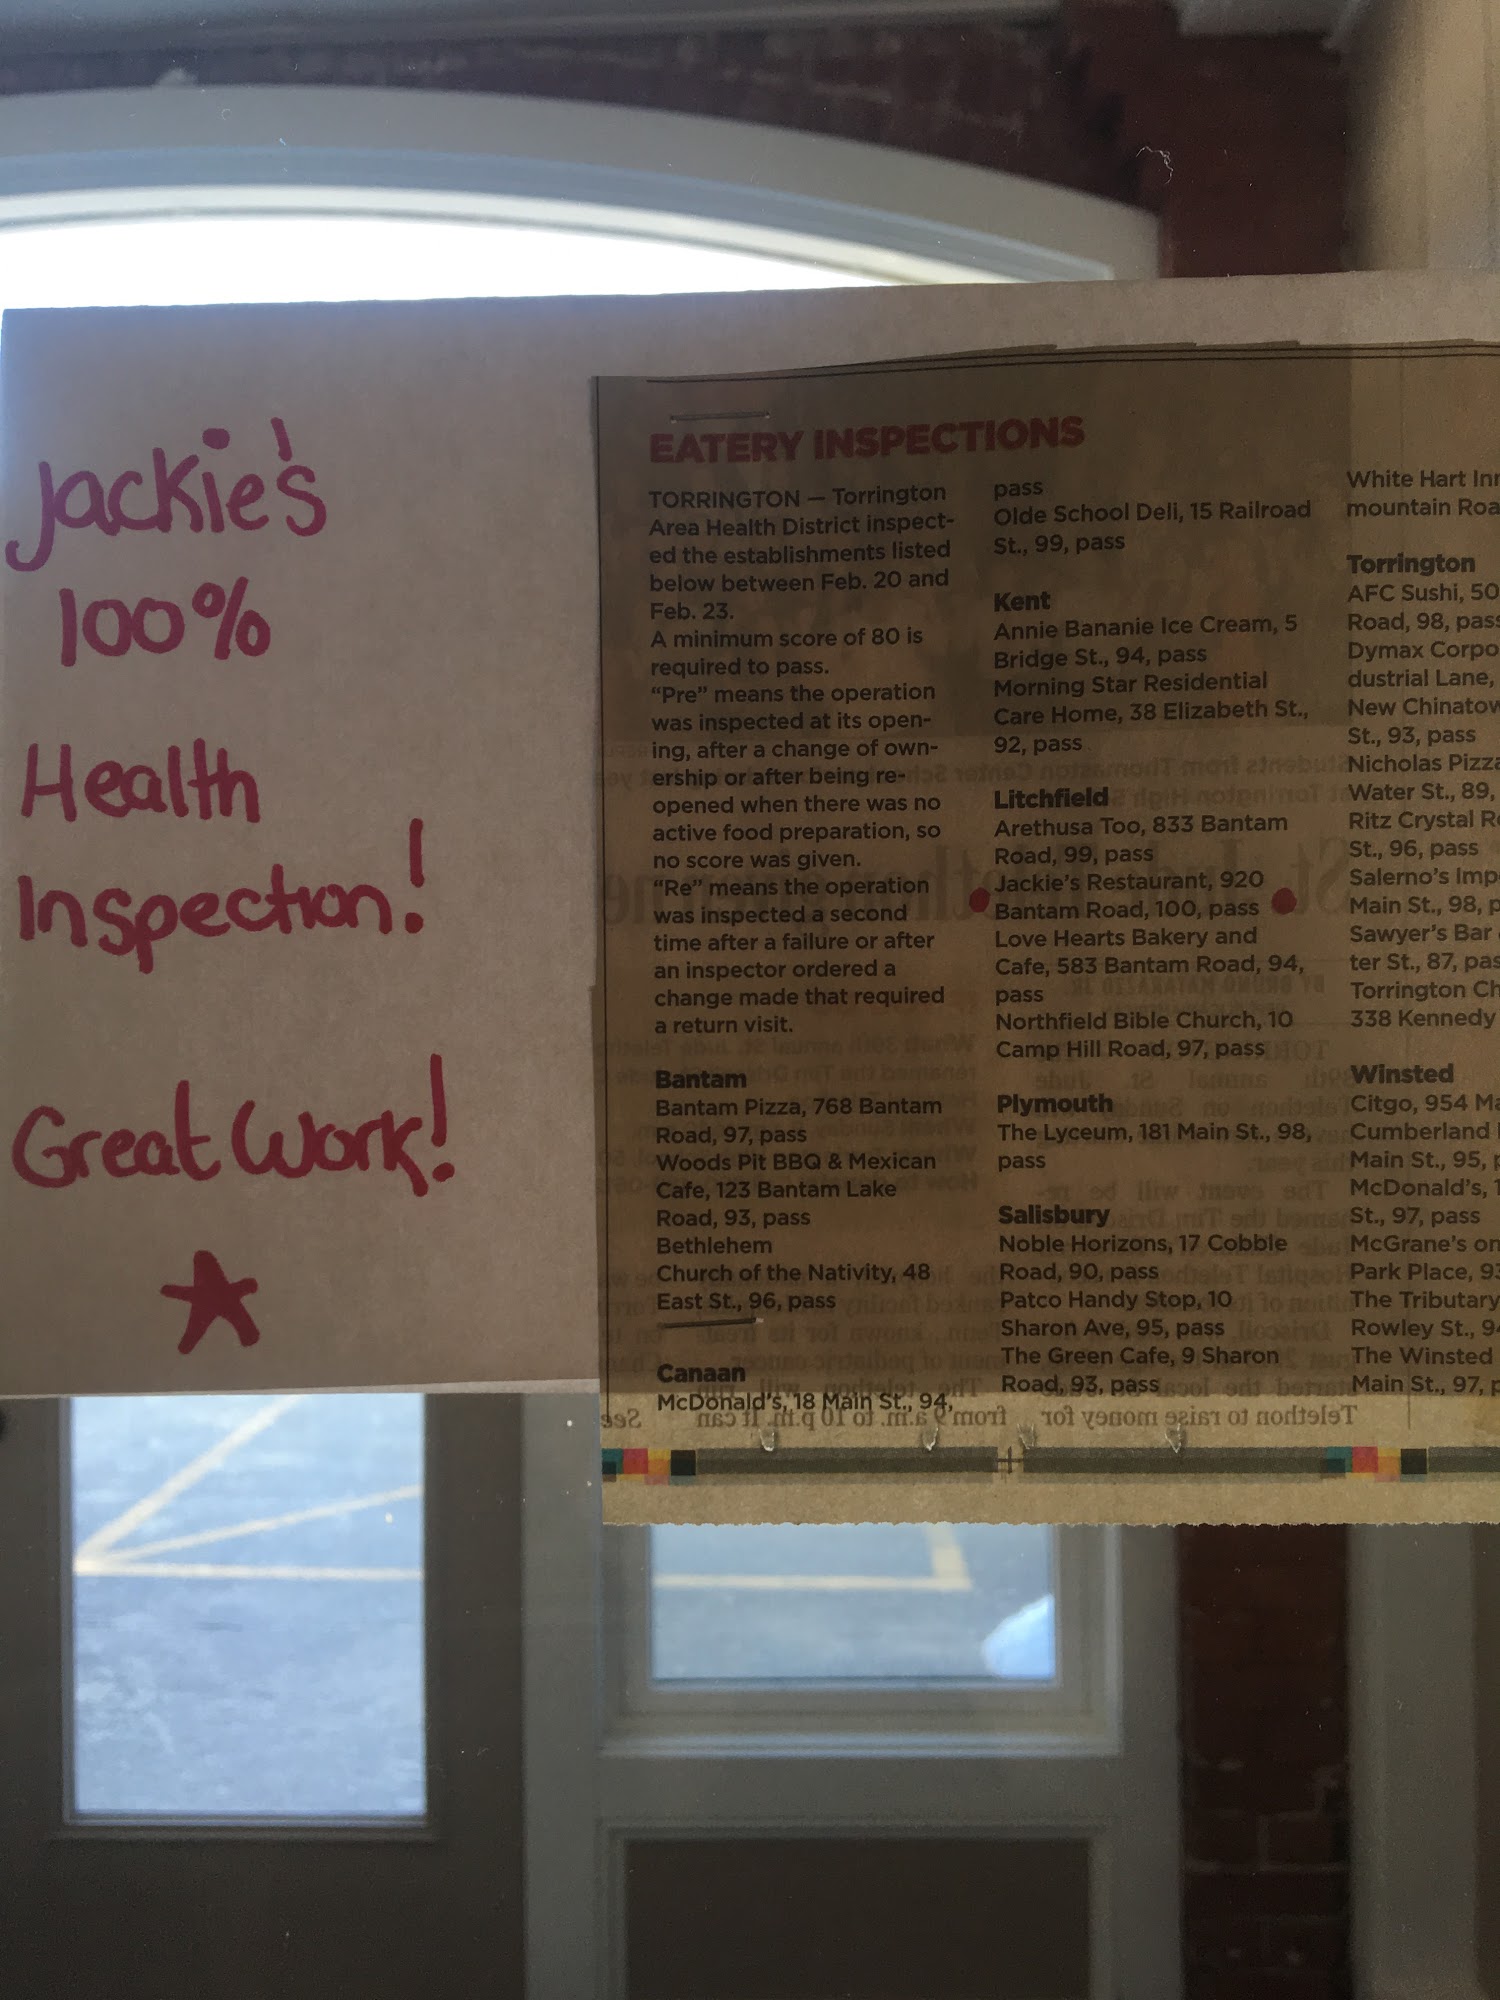 Jackie's
100%
Health
Inspection!
Great Work!
EATERY INSPECTIONS
TORRINGTON — Torrington
Area Health District inspect-
ed the establishments listed
below between Feb. 20 and
Feb. 23.
A minimum score of 80 is
required to pass.
“Pre” means the operation
was inspected at its open-
ing, after a change of own-
ership or after being re-
opened when there was no
active food preparation, so
no score was given.
“Re” means the operation
was inspected a second
time after a failure or after
an inspector ordered a
change made that required
a return visit.
Bantam
Bantam Pizza, 768 Bantam
Road, 97, pass
Woods Pit BBQ & Mexican
Cafe, 123 Bantam Lake
Road, 93, pass
Bethlehem
Church of the Nativity, 48
East St., 96, pass
Canaan
McDonald's, 18 Main St., 94,
pass
Olde School Deli, 15 Railroad
St., 99, pass
Kent
Annie Bananie Ice Cream, 5
Bridge St., 94, pass
Morning Star Residential
Care Home, 38 Elizabeth St.,
92, pass
Litchfield
Arethusa Too, 833 Bantam
Road, 99, pass
Jackie's Restaurant, 920
Bantam Road, 100, pass
Love Hearts Bakery and
Cafe, 583 Bantam Road, 94,
pass
Northfield Bible Church, 10
Camp Hill Road, 97, pass
Plymouth
The Lyceum, 181 Main St., 98,
pass
Salisbury
Noble Horizons, 17 Cobble
Road, 90, pass
Patco Handy Stop, 10
Sharon Ave, 95, pass
The Green Cafe, 9 Sharon
Road, 93, pass
White Hart Inn
mountain Roa
Torrington
AFC Sushi, 50
Road, 98, pass
Dymax Corpo
dustrial Lane,
New Chinatow
St., 93, pass
Nicholas Pizza
Water St., 89,
Ritz Crystal R
St., 96, pass
Salerno's Imp
Main St., 98, p
Sawyer's Bar
ter St., 87, pas
Torrington Ch
338 Kennedy
Winsted
Citgo, 954 Ma
Cumberland
Main St., 95, p
McDonald's, 1
St., 97, pass
McGrane's on
Park Place, 93
The Tributary
Rowley St., 9
The Winsted
Main St., 97, p